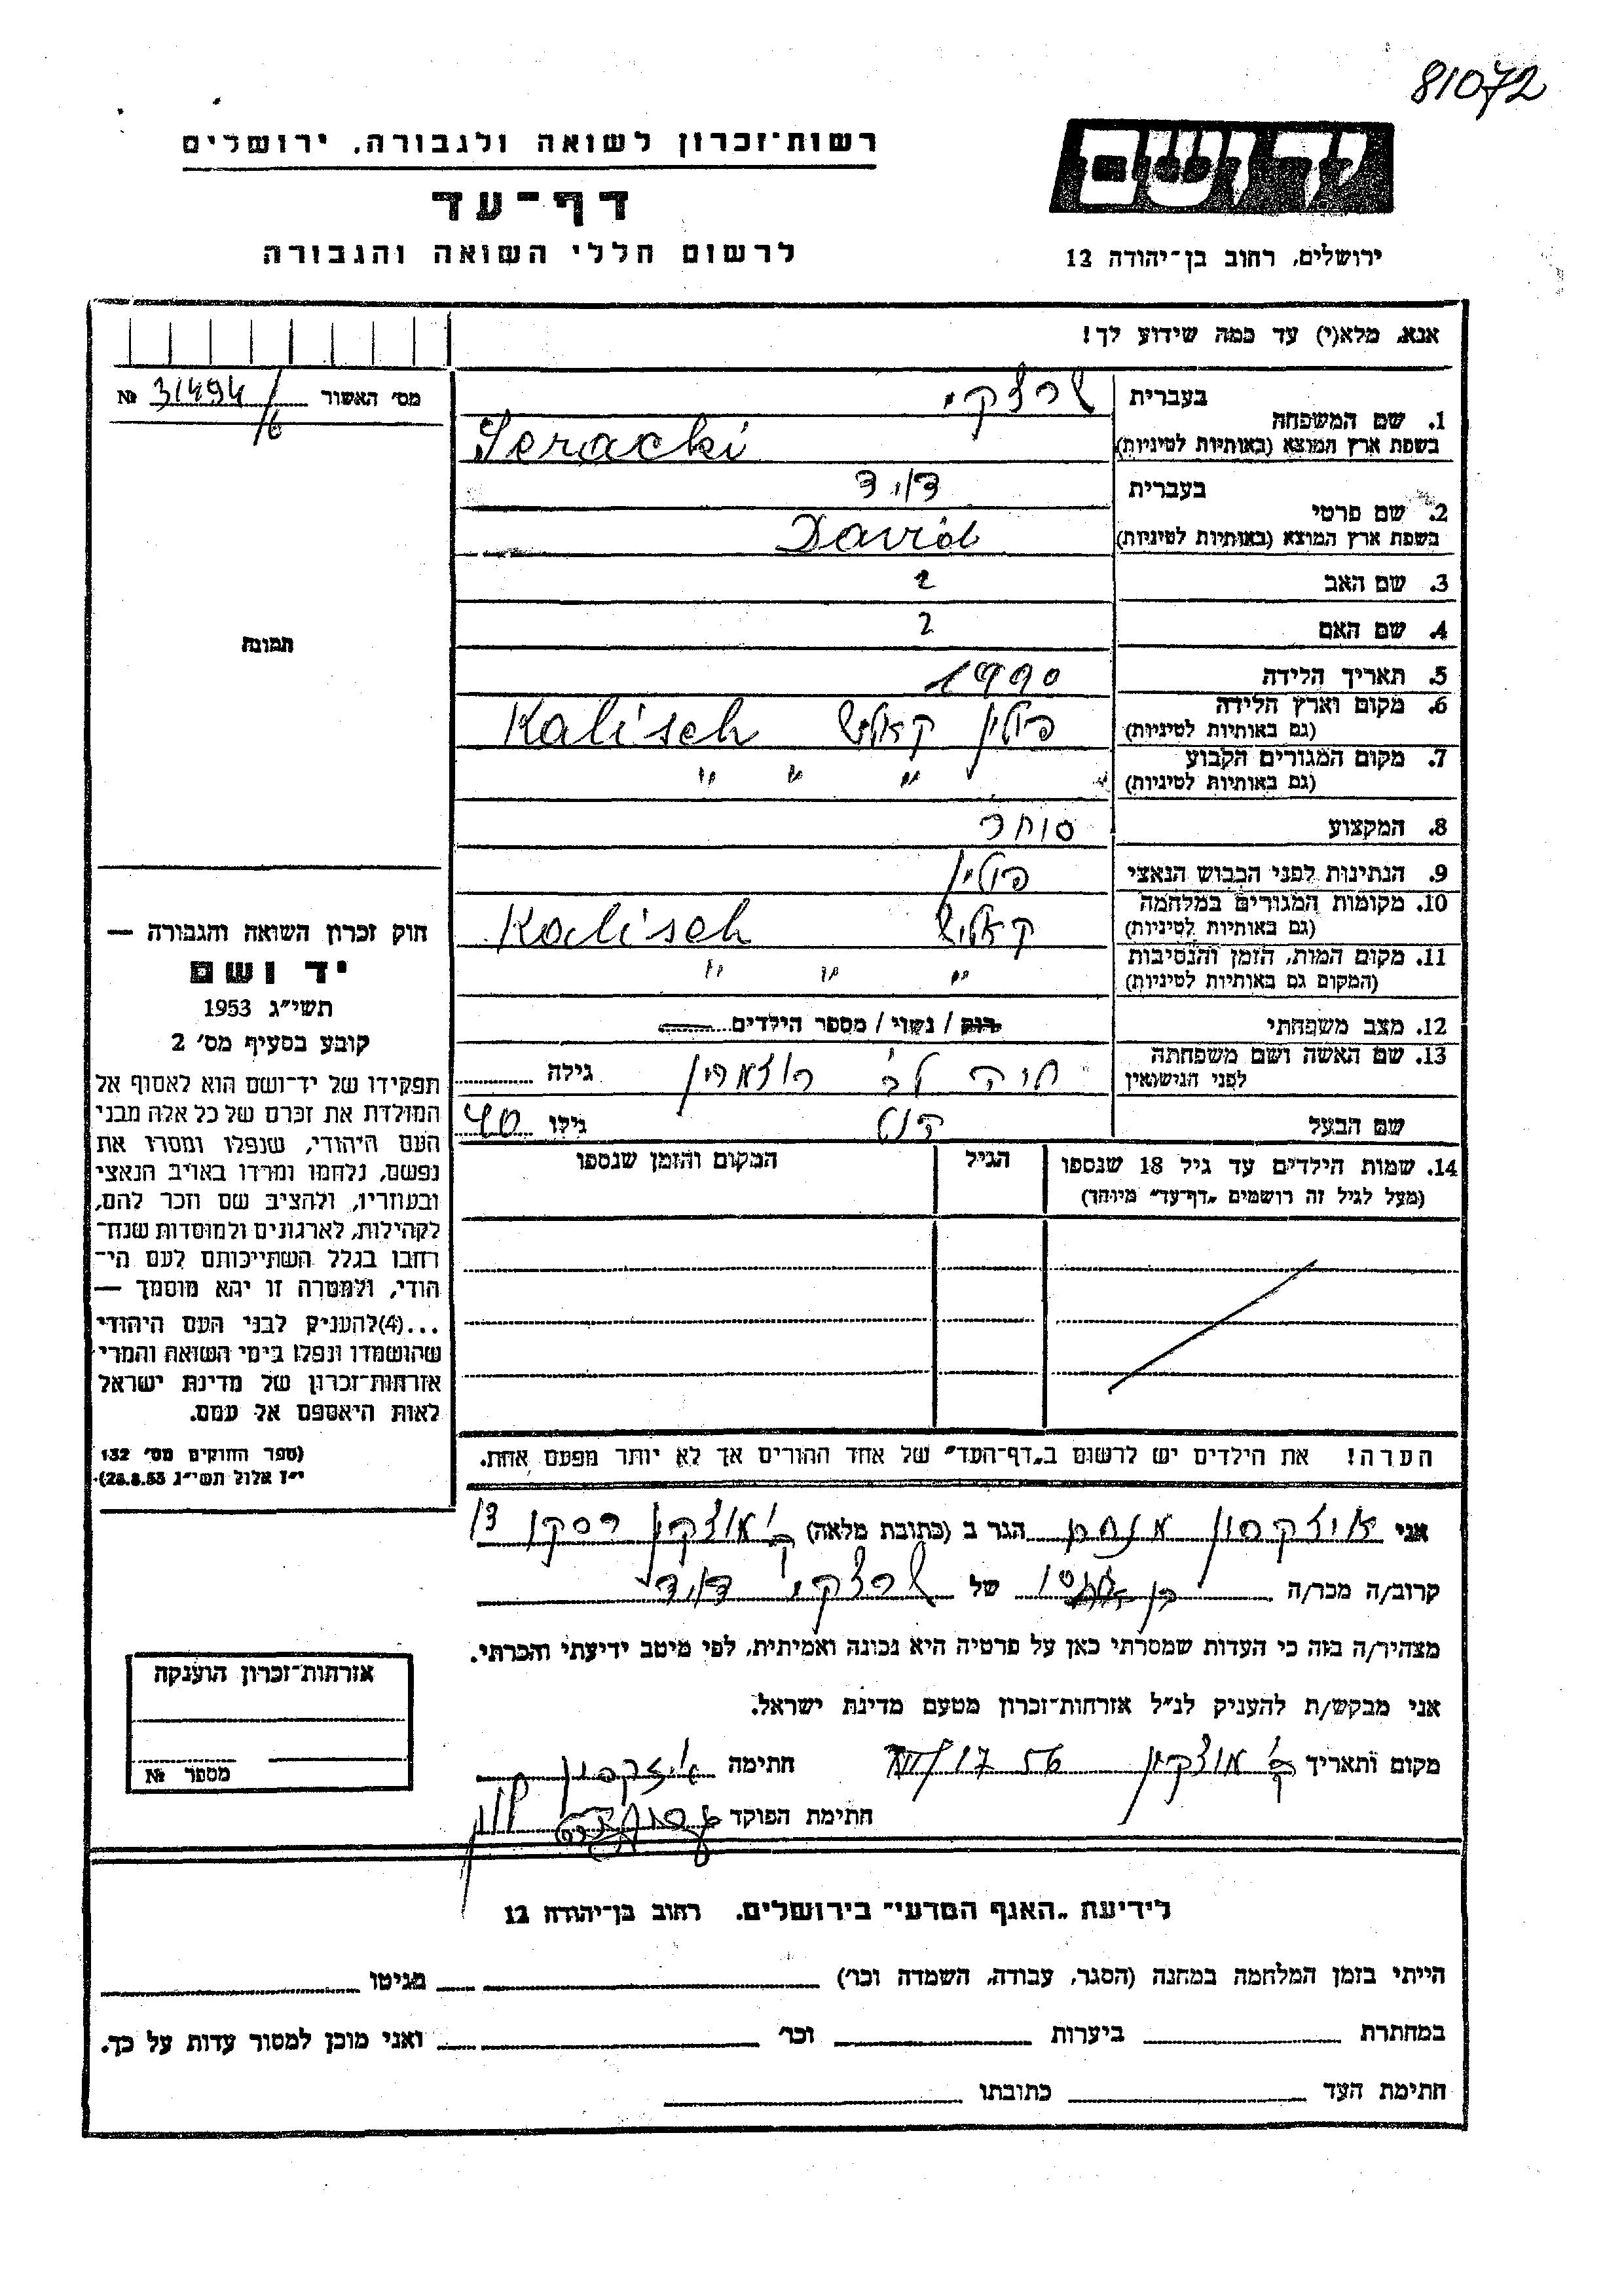 81072
יד ושם
ירושלים, רחוב בן־יהודה 12
רשות־זכרון לשואה ולגבורה, ירושלים
דף־עד
לרשום חללי השואה והגבורה
אנא, מלא(י) עד כמה שידוע לך!
מס׳ האשור 31494/16 №
תמונה
1. שם המשפחה בעברית שרצקי
בשפת ארץ המוצא (באותיות לטיניות) Seracki
2. שם פרטי בעברית דויד
בשפת ארץ המוצא (באותיות לטיניות) David
3. שם האב ?
4. שם האם ?
5. תאריך הלידה 1990
6. מקום וארץ הלידה (גם באותיות לטיניות) פולין קאליש Kalisch
7. מקום המגורים הקבוע (גם באותיות לטיניות) " " " "
8. המקצוע סוחר
9. הנתינות לפני הכבוש הנאצי פולין
10. מקומות המגורים במלחמה (גם באותיות לטיניות) קאליש Kalisch
11. מקום המות, הזמן והנסיבות (המקום גם באותיות לטיניות) " " "
12. מצב משפחתי רוק / נשוי / מספר הילדים
13. שם האשה ושם משפחתה לפני הנישואין חיה לבי גילה
שם הבעל גילו 40
14. שמות הילדים עד גיל 18 שנספו הגיל המקום והזמן שנספו
(מעל לגיל זה רושמים „דף־עד" מיוחד)
הערה! את הילדים יש לרשום ב„דף־העד" של אחד ההורים אך לא יותר מפעם אחת.
חוק זכרון השואה והגבורה —
יד ושם
תשי״ג 1953
קובע בסעיף מס׳ 2
תפקידו של יד־ושם הוא לאסוף אל
המולדת את זכרם של כל אלה מבני
העם היהודי, שנפלו ומסרו את
נפשם, נלחמו ומרדו באויב הנאצי
ובעוזריו, ולהציב שם וזכר להם,
לקהילות, לארגונים ולמוסדות שנח־
רבו בגלל השתייכותם לעם הי־
הודי, ולמטרה זו יהא מוסמך —
...(4)להעניק לבני העם היהודי
שהושמדו ונפלו בימי השואה והמרי
אזרחות־זכרון של מדינת ישראל
לאות היאספם אל עמם.
(ספר החוקים מס׳ 132
י״ז אלול תשי״ג 28.8.53)
אני איזקסון מנחם הגר ב (כתובת מלאה) ק׳ מוצקין
קרוב/ה מכר/ה בן של שרצקי דויד
מצהיר/ה בזה כי העדות שמסרתי כאן על פרטיה היא נכונה ואמיתית, לפי מיטב ידיעתי והכרתי.
אני מבקש/ת להעניק לנ״ל אזרחות־זכרון מטעם מדינת ישראל.
מקום ותאריך ק׳ מוצקין 56 17/VII חתימה איזקסון
חתימת הפוקד
אזרחות־זכרון הוענקה
מספר №
לידיעת „האגף המדעי" בירושלים, רחוב בן־יהודה 12
הייתי בזמן המלחמה במחנה (הסגר, עבודה, השמדה וכו׳) מגיטו
במחתרת ביערות וכו׳ ואני מוכן למסור עדות על כך.
חתימת העד כתובתו